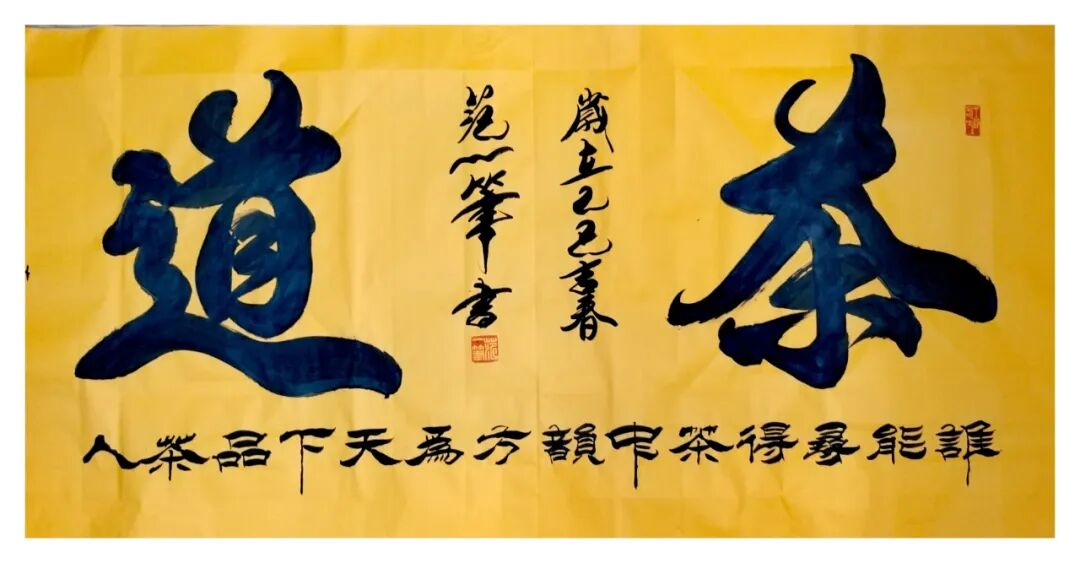 茶道
歲在乙巳吉春
范心筆書
誰能尋得茶中韻方爲天下品茶人